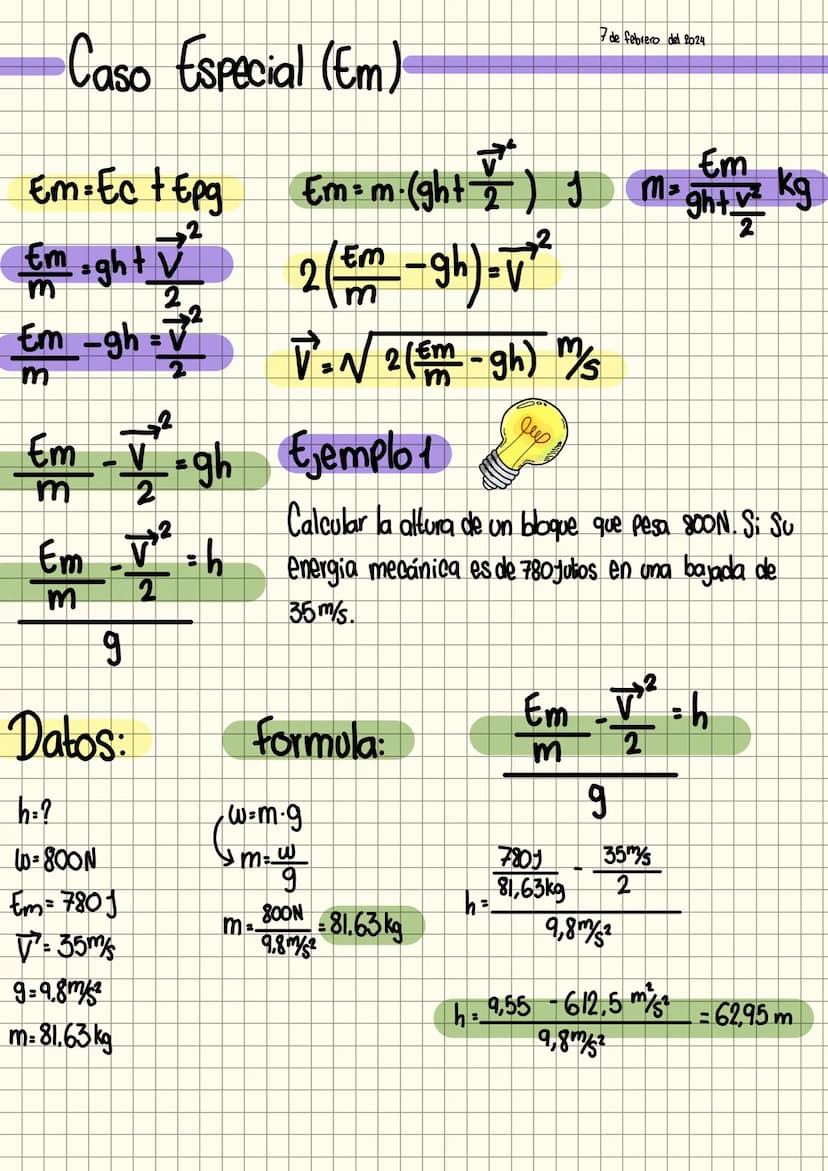 7 de febrero del 2024
Caso Especial (Em)
Em=Ec + Epg
Em/m = gh + v⃗²/2
Em/m - gh = v⃗²/2
Em/m - v⃗²/2 = gh
(Em/m - v⃗²/2)/g = h
Em = m·(gh + v⃗²/2) J
2(Em/m - gh) = v⃗²
v⃗ = √2(Em/m - gh) m/s
m = Em/(gh + v²/2) kg
Ejemplo 1
Calcular la altura de un bloque que pesa 800N. Si Su
energia mecánica es de 780 julios en una bajada de
35 m/s.
Datos:
h=?
w=800N
Em= 780J
V⃗= 35m/s
g=9.8m/s²
m=81.63kg
formula:
w=m·g
m=w/g
m=800N/9.8m/s² = 81.63 kg
(Em/m - v⃗²/2)/g = h
h=(780J/81,63kg - 35m/s/2)/9,8m/s²
h=(9,55 - 612,5 m²/s²)/9,8m/s² = 62,95 m